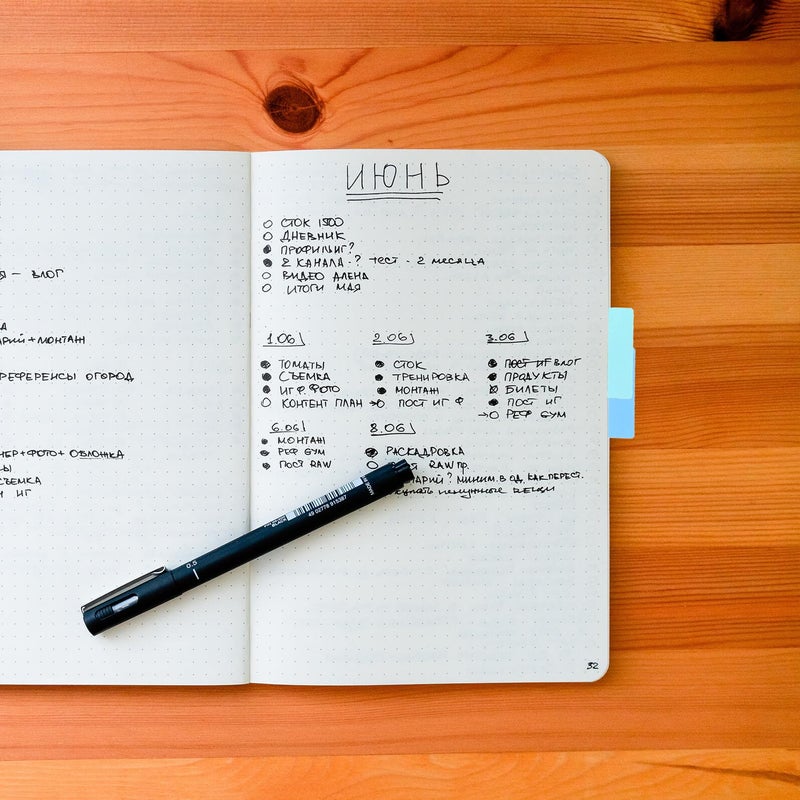 – ВЛОГ
+ МОНТАЖ
РЕФЕРЕНСЫ ОГОРОД
+ФОТО+ ОБЛОЖКА
СЪЕМКА
ИГ
ИЮНЬ
СТОК 1500
ДНЕВНИК
ПРОФИЛЬ ИГ?
2 КАНАЛА - ? ТЕСТ - 2 МЕСЯЦА
ВИДЕО АЛЕНА
ИТОГИ МАЯ
1.06
ТОМАТЫ
СЪЕМКА
ИГ Ф. ФОТО
КОНТЕНТ ПЛАН →
2.06
СТОК
ТРЕНИРОВКА
МОНТАЖ
ПОСТ ИГ Ф
3.06
ПОСТ ИГ ВЛОГ
ПРОДУКТЫ
БИЛЕТЫ
ПОСТ ИГ
→ РЕФ GYM
6.06
МОНТАЖ
РЕФ GYM
ПОСТ RAW
8.06
РАСКАДРОВКА
RAW ПР.
? МИНИМ. В ОД. КАК ПЕРЕСТ.
ненужные вещи
MADE IN
BLACK
49 02778 915387
0.5
32